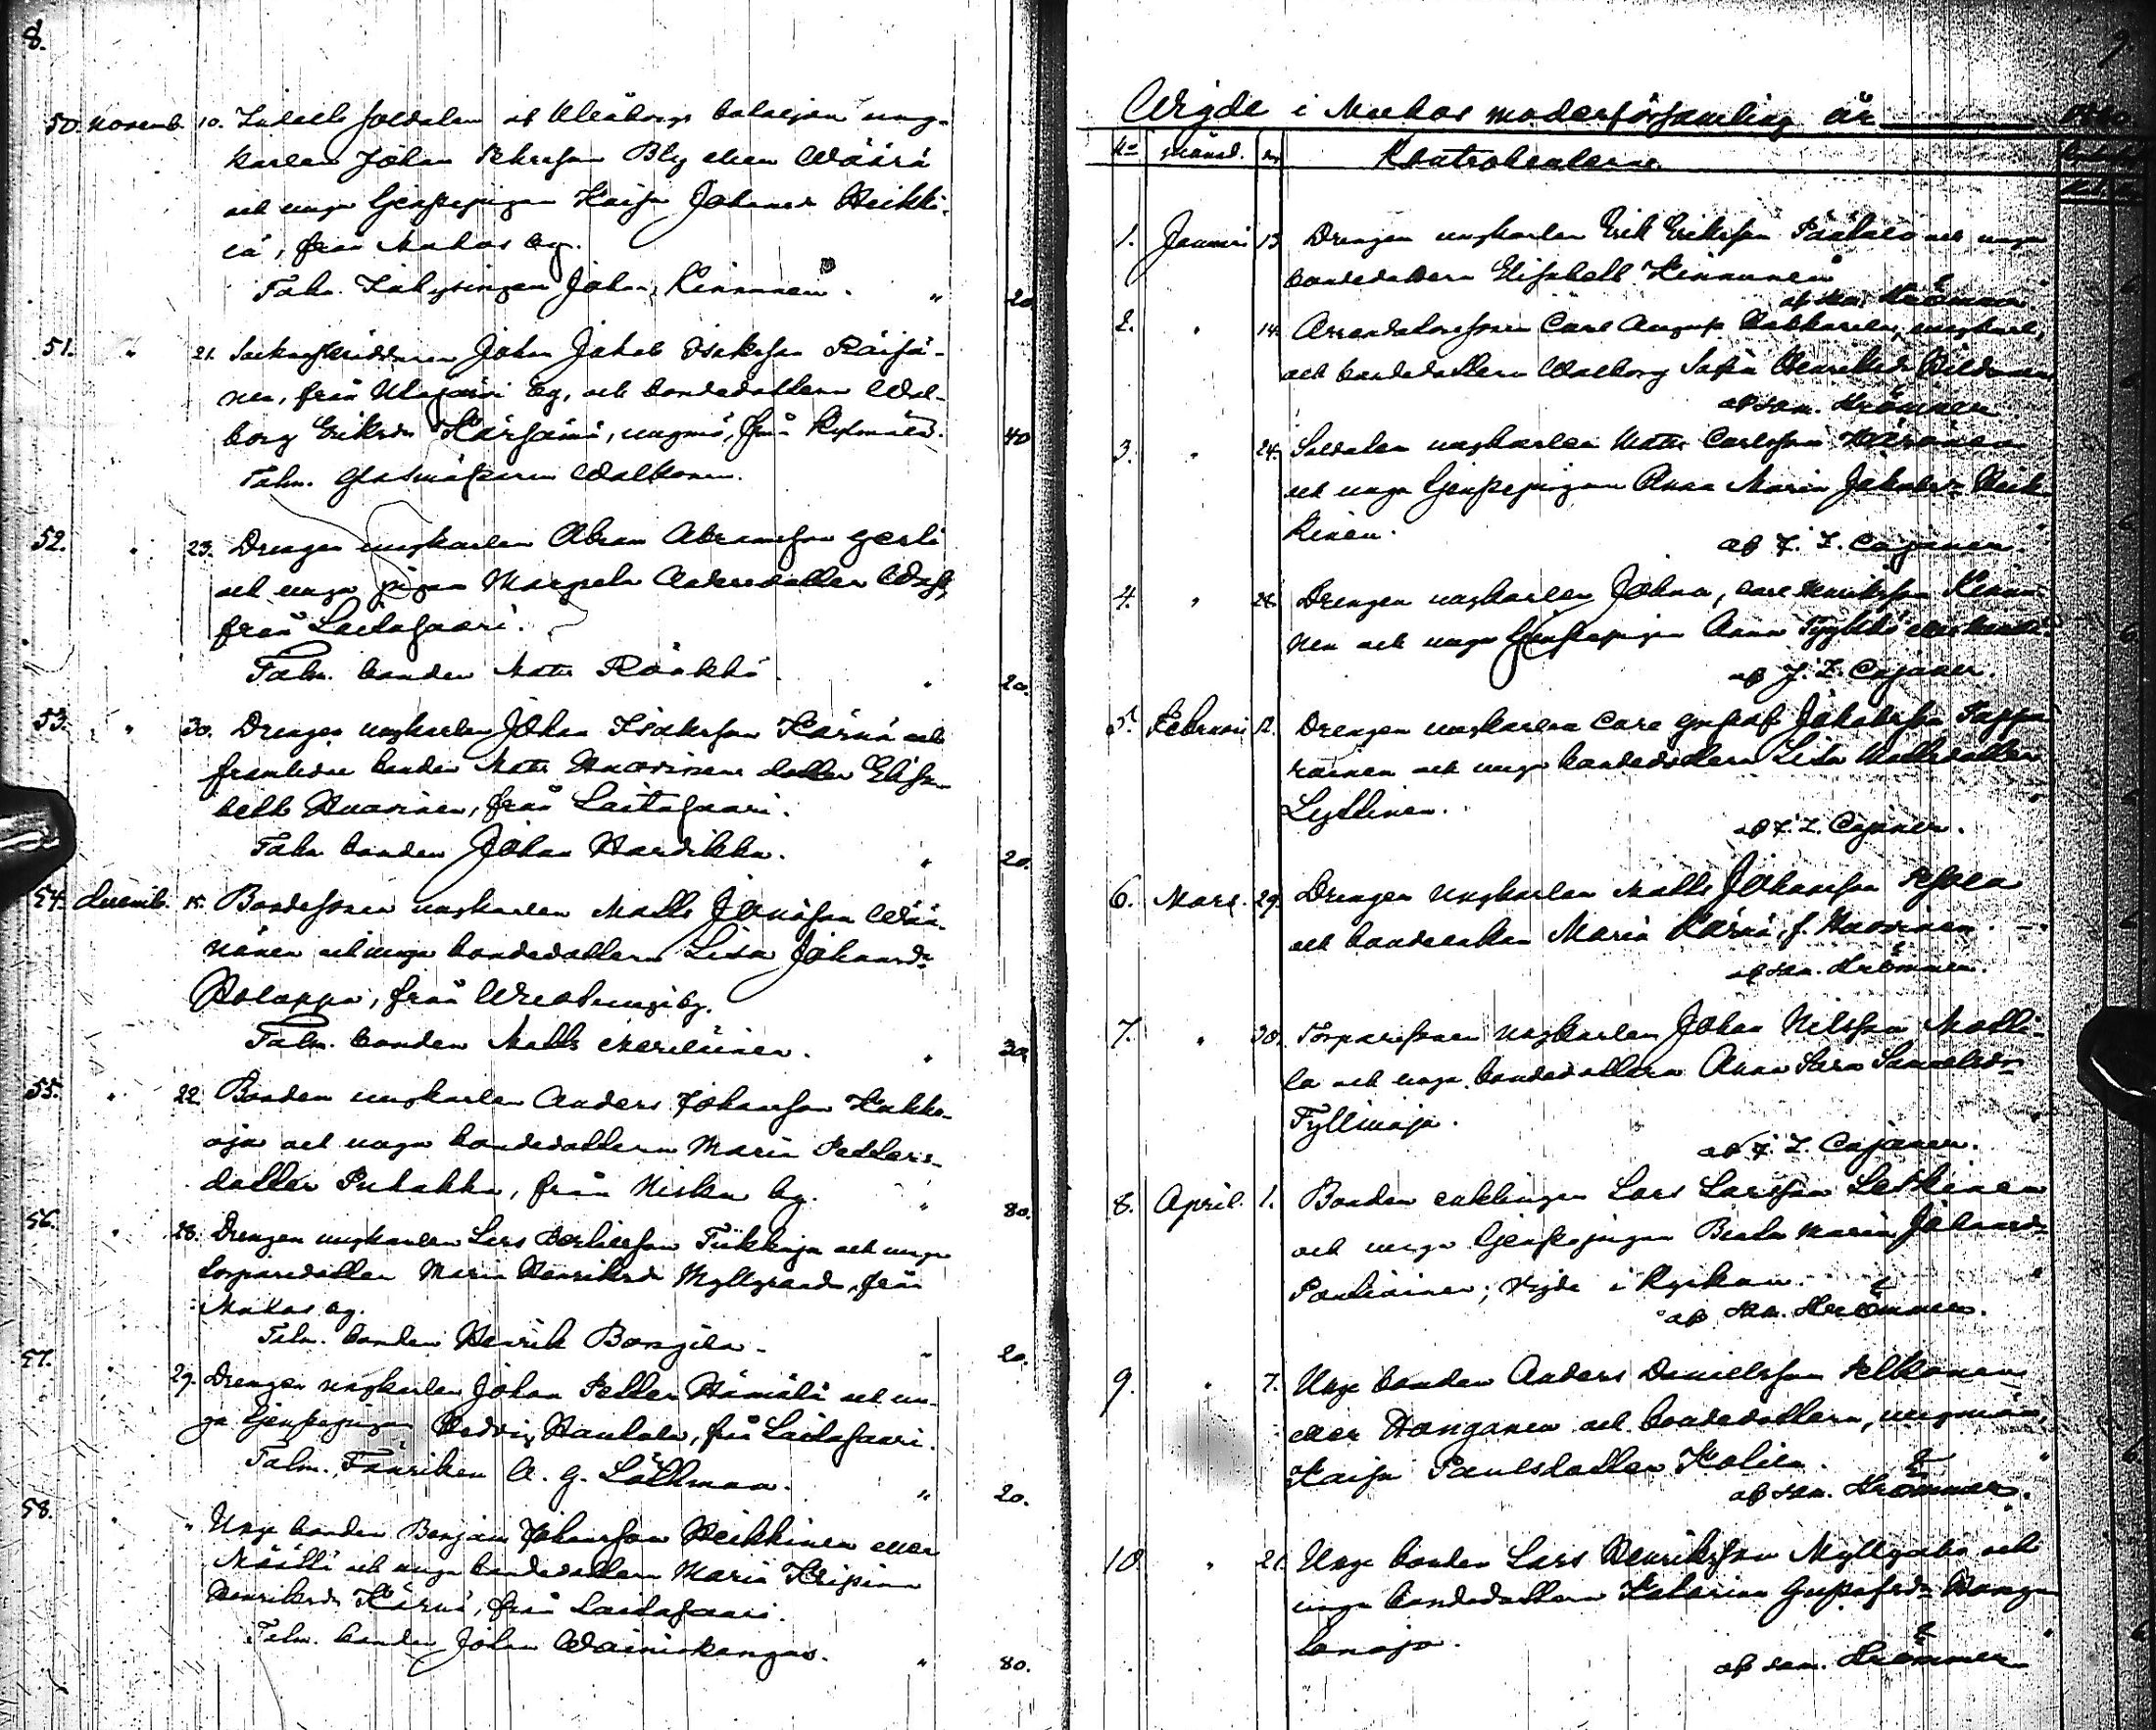 8.
50. Novemb. 10. Indelte soldaten af Uleåborgs bataljon ung-
karlen Johan Pehrsson Bly eller Wäärä
och unga tjenstepigan Kaisa Johansdr Heikki-
lä, från Muhos by.
Talm. Inhysingen Johan Kinnunen. " 20
51. " 21. Johan Jakob Isaksson Räisä-
nen, från Utajärvi by, och bondedottern Wal-
borg Eriksdr Kärsämä, ungmö, från Kylmälä. 40
Talm. Glasmästaren Walkonen.
52. " 23. Drengen ungkarlen Abram Abramsson Yerli
och unga pigan Margeta Andersdotter
från Laitasaari.
Talm. bonden Matts Räikkö. " 20.
53. " 30. Drengen ungkarlen Johan Isaksson Kärnä och
framlidne bonden Matts Huovinens dotter Elisa-
beth Huovinen, från Laitasaari.
Talm bonden Johan Hardikka. " 20.
54. Decemb. 15. Bondesonen ungkarlen Matts Jönsson Wää-
nänen och unga bondedottern Lisa Johansdr
Holappa, från by.
Talm. bonden Matts Meriläinen. " 30
55. " 22. Bonden ungkarlen Anders Johansson Kukko-
oja och unga bondedottern Maria Petters-
dotter Puhakka, från Niska by. " 80.
56. " 28. Drengen ungkarlen Lars Bertilsson Tikkaja och unga
torparedotter Maria Henriksdr Myllyranda, från
Muhos by.
Talm. bonden Henrik Bongila. " 20.
57. " 29. Drengen ungkarlen Johan Petter Hämälä och un-
ga tjenstepigan Hedvig Hautala, från Laitasaari.
Talm. Fänriken A. G. Löthman. " 20.
58. " " Unge bonden Benjam Johansson Heikkinen eller
Määttä och unga bondedottern Maria Kristina
Henriksdr Kärnä, från Laitasaari.
Talm. bonden Johan Wäiniskangas. " 80.
9
Wigde i Muhos moderförsamling år
No månad. Kontrahenterne
1. Januari 13 Drengen ungkarlen Erik Eriksson Päätalo och unga
bondedottern Elisabeth Kinnunen
af den. Krömmer
2. " 14. Arrendatorssonen Carl August Kakkarila, ungkarl,
och bondedottern Walborg Sofia Henriksdr Hildunen
af den. Krömmer
3. " 24. Soldaten ungkarlen Matts Carlsson Härönen
och unga tjenstepigan Anna Maria Jakobsdr Heik-
kinen.
af F. I. Cajaner.
4. " 26. Drengen ungkarlen Johan, Carl Henriksson Kinnu-
nen och unga tjenstepigan Anna
af F. I. Cajaner.
5. Februari 12. Drengen ungkarlen Carl Gustaf Jakobsson Tappa-
rainen och unga bondedottern Lisa Mattsdotter
Lyttinen.
af F. I. Cajaner.
6. Mars. 29. Drengen ungkarlen Matts Johansson Pesola
och bondeenkan Maria Kärnä, f. Huovinen.
af den. Krömmer.
7. " 30. Torparesonen ungkarlen Johan Nilsson Matti-
la och unga bondedottern Anna Sara Samuelsdr
Tyllinoja.
af F. I. Cajaner.
8. April. 1. Bonden enklingen Lars Larsson Leskinen
och unga tjenstepigan Beata Maria Johansdr
Pouliainen; vigde i kyrkan.
af den. Krömmer.
9. " 7. Unge bonden Anders Danielsson Pelkonen
eller Honganen och bondedottern, ungmön,
Kaisa Paulsdotter Kolien.
af den. Krömmer.
10. " 21. Unge bonden Lars Henriksson Myllyaho och
unga bondedottern Katarina Gustafsdr Honga-
lanoja.
af den. Krömmer